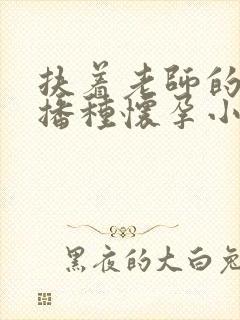 扶着老师的
播种怀孕小
黑夜的大白兔